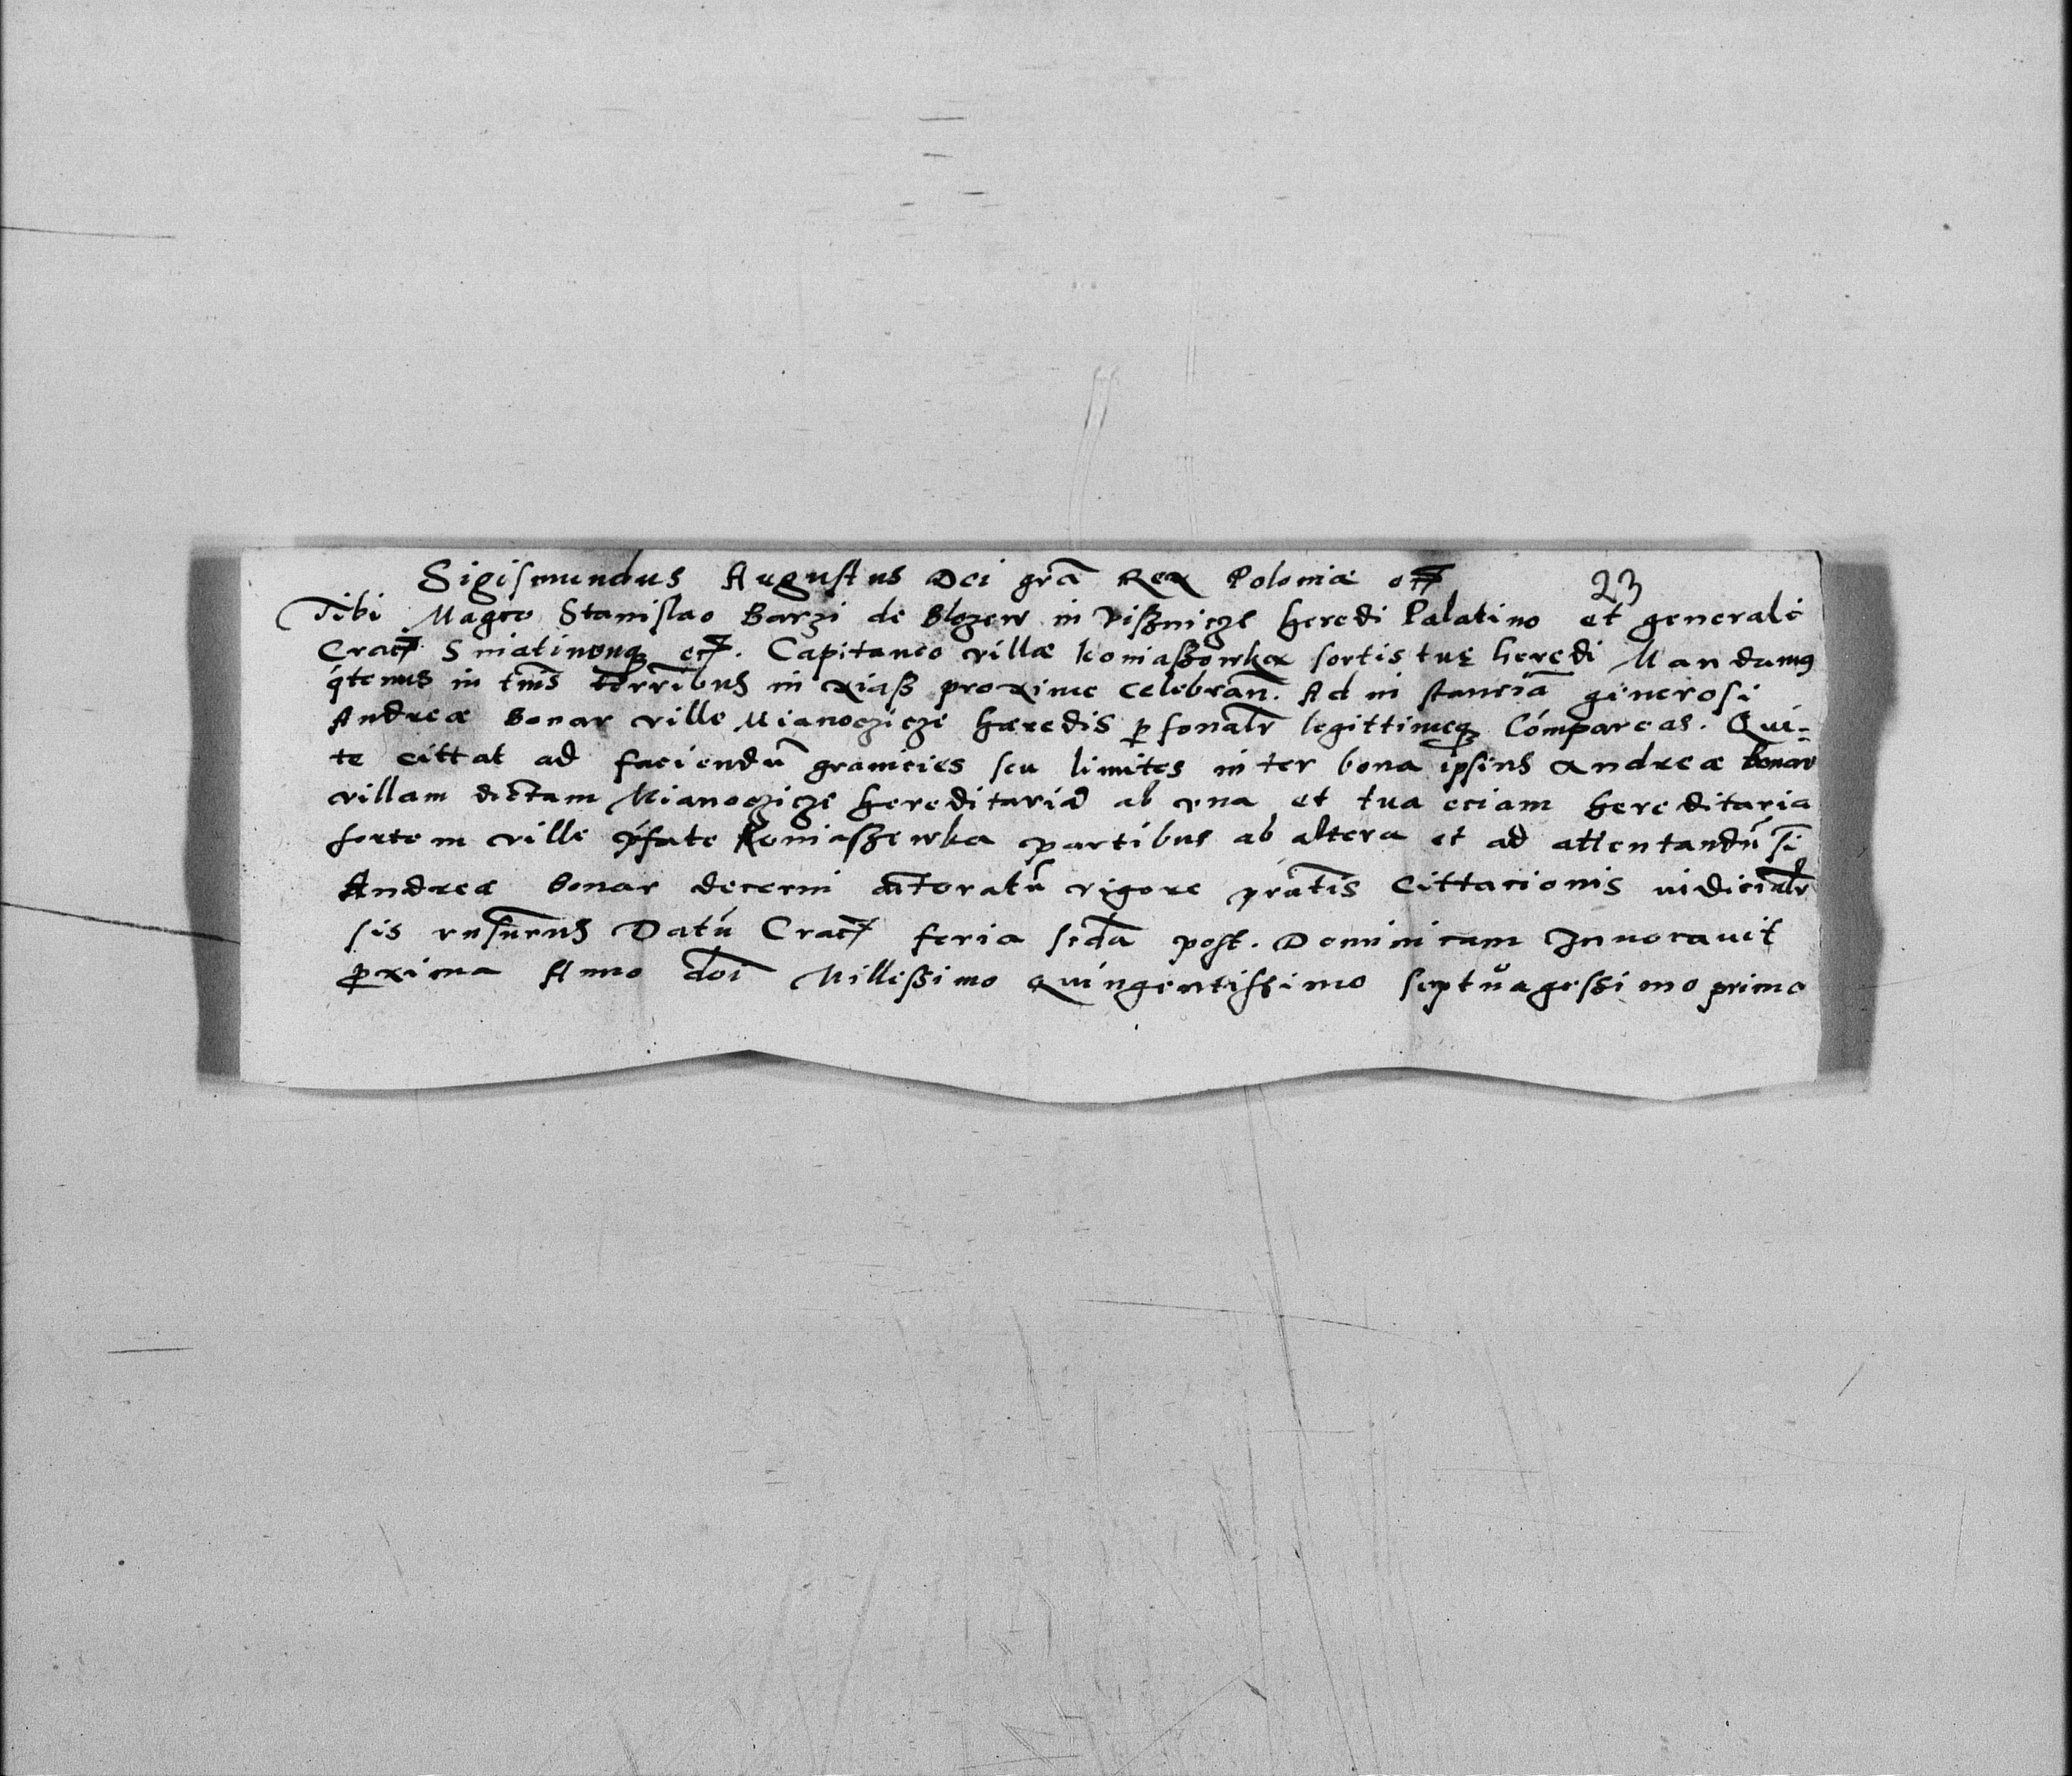 Sigismundus Augustus Dei grã Rex Poloniæ etc
23
Tibi Magco Stanislao Barzi de Blozew in Visznicze heredi Palatino et generali
Crac. Sniatinenq₃ etc. Capitaneo villæ koniaszowka sortis tuę heredi Mandamꝰ
q̃tenus in tm̃s terribus in Xiasz proxime celebrañ. Ad in stanciã generosi
Andreæ Bonar ville Mianoczicze hæredis ꝑsonalr̃ legittimeq₃ Compareas. Qui=
te cittat ad faciendũ gramicies seu limites inter bona ipsius Andreæ bonar
villam dictam Mianoczicze hereditariã ab vna et tua eciam hereditaria
sortem ville p̃fate Koniaszewka partibus ab altera et ad attentandũ si
Andreæ bonar decerni actoratũ vigore pr̃ntis cittacionis iudicialr̃
sis rñsurus Datũ Crac feria scda post. Dominicam Inuocauit
ꝓxima Anno dni Millessimo Quingentissimo septuagessimo primo